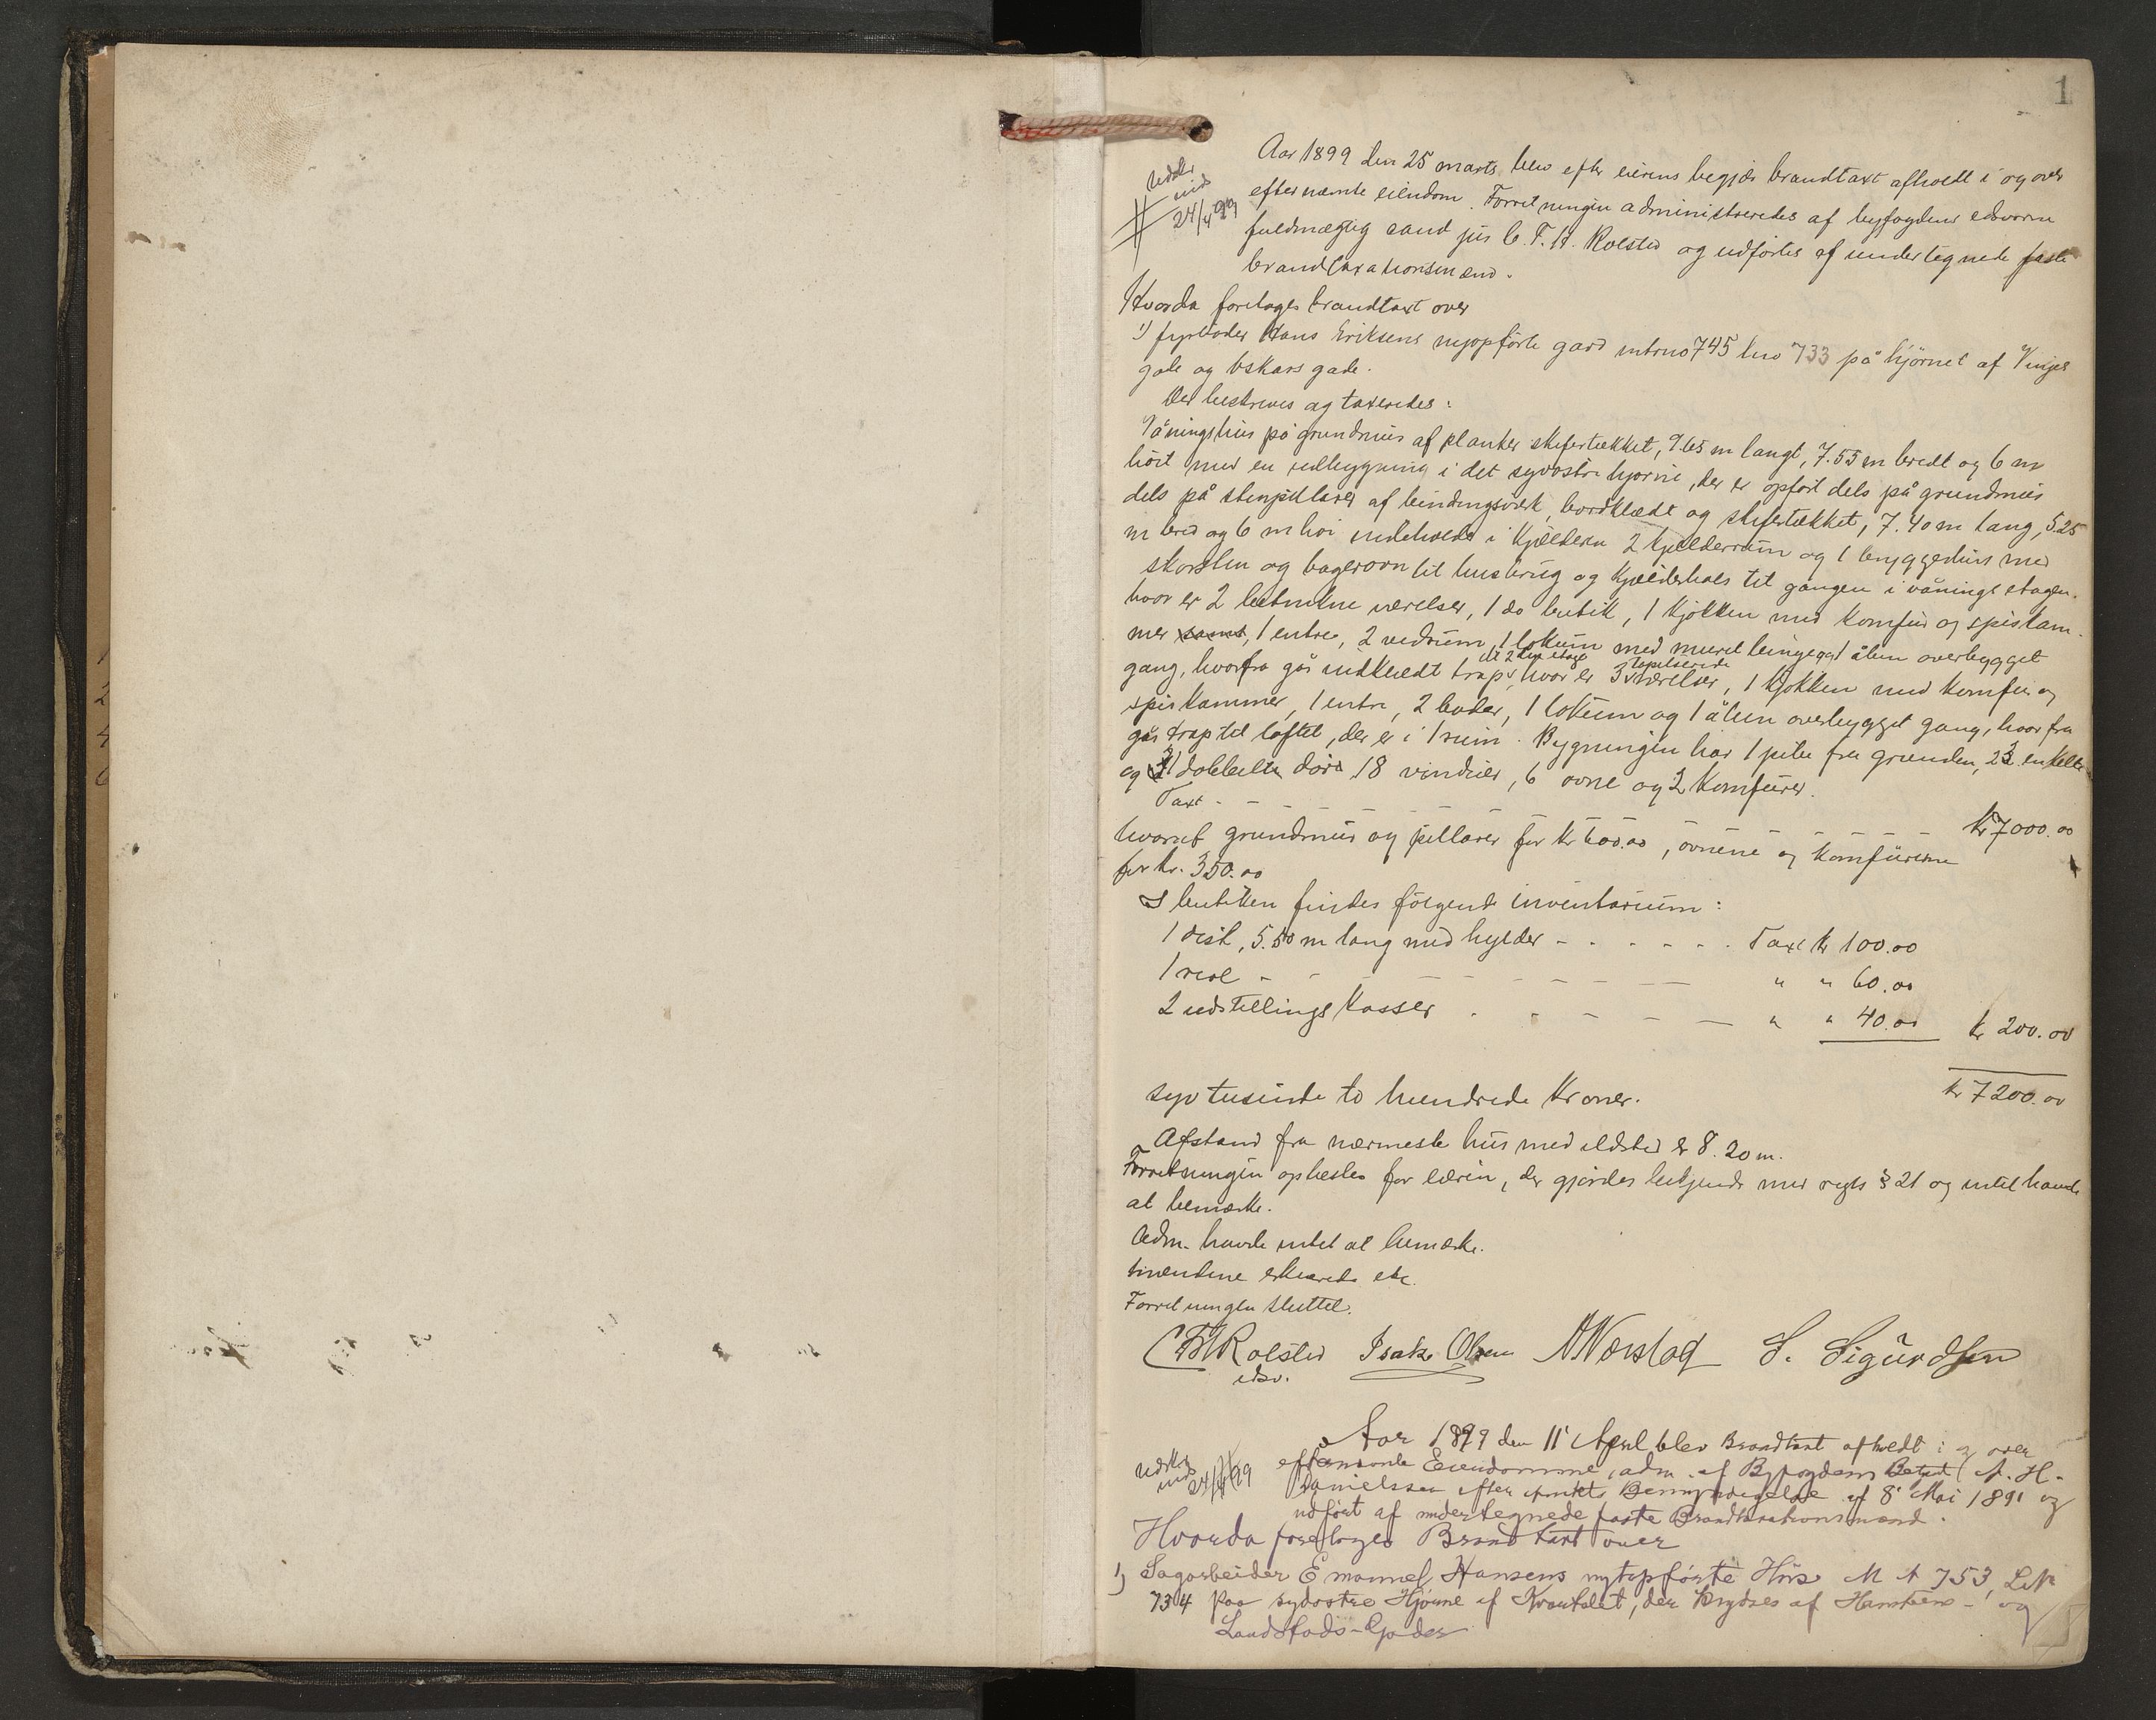 1
Aar 1899 den 25 marts blev efter eierens begjær brandtaxt afholdt i og over
efternævnte eiendom. Forretningen administreredes af byfogdens edsvorne
fuldmægtig cand jur C. F. H. Rolsted og udførtes af undertegnede faste
brandtaxationsmænd.
24/4 99
Hvorda foretoges brandtaxt over
1) fyrbøder Hans Eriksens nyopførte gård mtrno 745 bno 733 på hjørnet af Vinjes
gade og Oskars gade.
Der beskreves og taxeredes:
Våningshus på grundmur af planker skifertækket, 9.65 m langt, 7.55 m bredt og 6 m
høit med en udbygning i det sydøstre hjørne, der er opført dels på grundmur
dels på stenpillarer af bindingsverk, bordklædt og skifertækket, 7.40 m lang, 5.25
m bred og 6 m høi indeholder i kjælderen 2 kjælderrum og 1 bryggerhus med
skorsten og bagerovn til husbrug og kjælderhals til gangen i vånings etagen.
hvor er 2 betrukne værelser, 1 do butik, 1 kjøkken med komfur og spiskam-
mer samt, 1 entre, 2 vedrum, 1 lokum med muret binge og 1 åben overbygget
gang, hvorfra går indklædt trap til 2den etage, hvor er 3 tapetserede værelser, 1 kjøkken med komfur og
spiskammer, 1 entre, 2 boder, 1 lokum og 1 åben overbygget gang, hvorfra
går trap til loftet, der er i 1 rum. Bygningen har 1 pibe fra grunden, 23 enkelte
og 1 dobbelte døre 18 vinduer, 6 ovne og 2 komfurer.
Taxt - - - - - - - - - - kr 7000.00
hvoraf grundmur og pillarer for kr 600.00, ovnene og komfurerne
for kr. 350.00
I butiken findes følgende inventarium:
1 disk, 5.50 m lang med hylder - - - - - - Taxt kr 100.00
1 reol - - - - - - - - " " 60.00
2 udstillings kasser - - - - - " " 40.00 kr 200.00
kr 7200.00
syv tusinde to hundrede kroner.
Afstand fra nærmeste hus med ildsted er 8.20 m.
Forretningen oplæstes for eieren, der gjordes bekjendt med regls § 21 og intet havde
at bemærke.
Adm. havde intet at bemærke.
Mændene erklærede etc.
Forretningen sluttet.
CFHRolsted Isak Olsen S. Sigurdsen
edsv.
Aar 1899 den 11' April blev Brandtaxt afholdt i og over
efternævnte Eiendomme, adm. af Byfogdens Betjent A. H.
Danielssen efter Amtets Bemyndigelse af 8' Mai 1891 og
udført af undertegnede faste Brandtaxationsmænd.
24/4 99
Hvorda foretoges Brandtaxt over
1) Sagarbeider Emanuel Hansens nyopførte Hus M N 753, LN
734 paa sydøstre Hjørne af Kvartalet, der krydses af Hansteens- og
Landstads-Gader